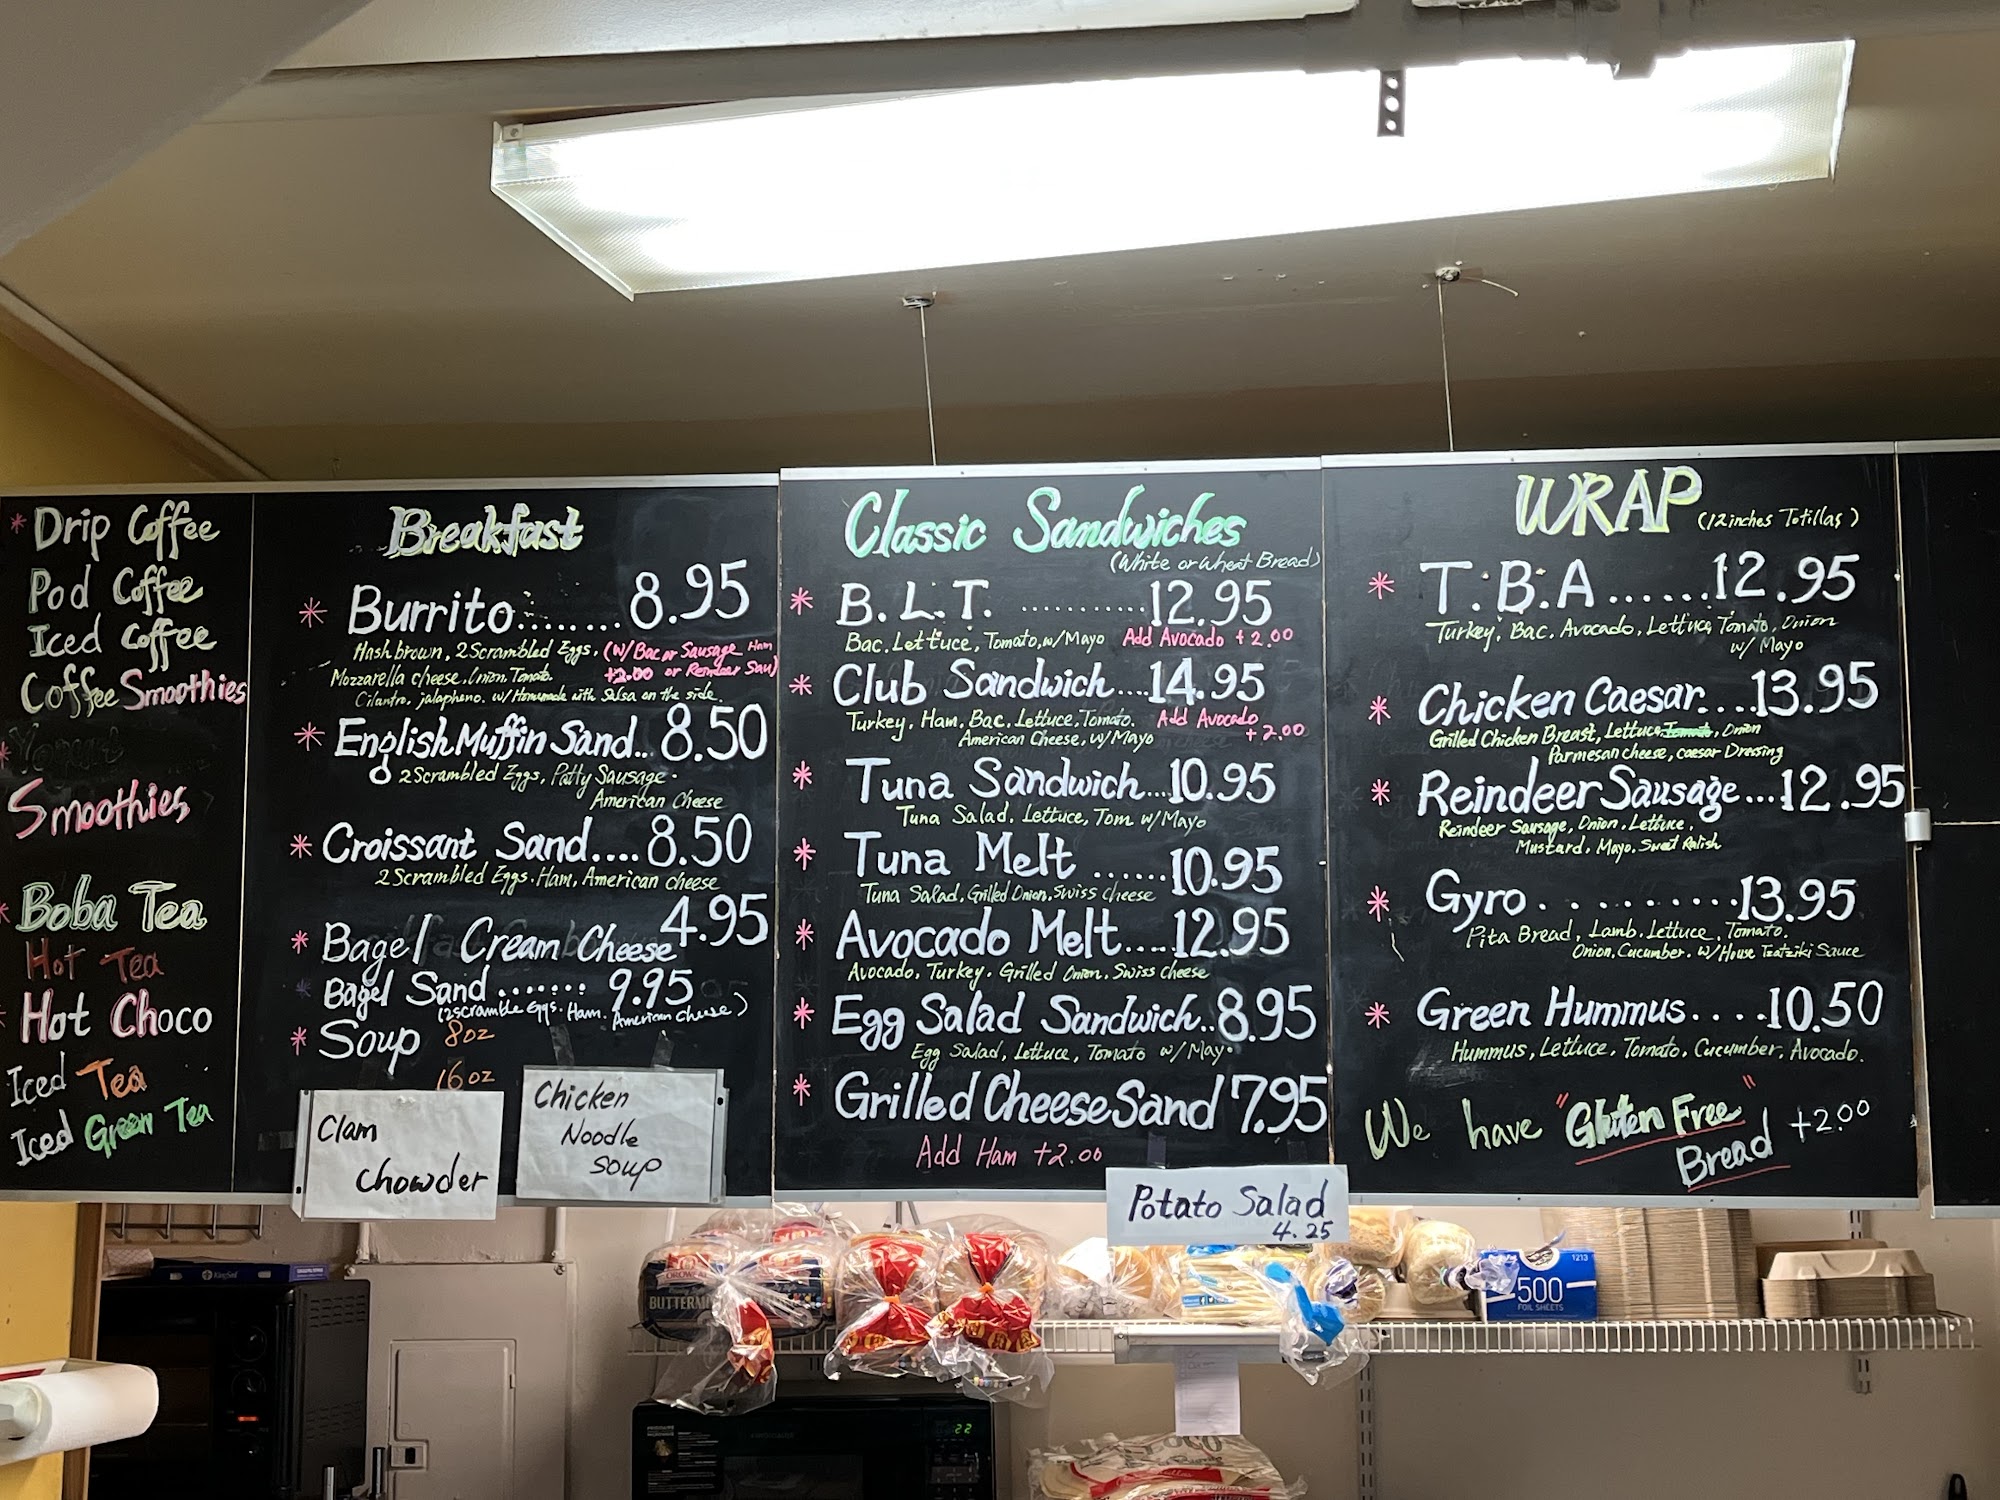 * Drip Coffee
Pod Coffee
Iced Coffee
Coffee Smoothies
* Yogurt
Smoothies
* Boba Tea
Hot Tea
* Hot Choco
Iced Tea
Iced Green Tea
Breakfast
* Burrito........ 8.95
Hash brown, 2 Scrambled Eggs, (w/ Bac or Sausage Ham
Mozzarella cheese, Onion, Tomato. +2.00 or Reindeer Sau)
Cilantro, jalapheno. w/ Homemade with Salsa on the side
* English Muffin Sand... 8.50
2 Scrambled Eggs, Patty Sausage.
American Cheese
* Croissant Sand.... 8.50
2 Scrambled Eggs. Ham, American cheese
* Bagel Cream Cheese 4.95
* Bagel Sand ....... 9.95
(2 scramble Eggs. Ham. American cheese)
* Soup 8oz
16oz
Clam
Chowder
Chicken
Noodle
Soup
Classic Sandwiches
(White or Wheat Bread)
* B.L.T. ........... 12.95
Bac. Lettuce, Tomato, w/ Mayo Add Avocado +2.00
* Club Sandwich.... 14.95
Turkey, Ham, Bac. Lettuce, Tomato. Add Avocado
American Cheese, w/ Mayo +2.00
* Tuna Sandwich... 10.95
Tuna Salad, Lettuce, Tom w/ Mayo
* Tuna Melt ...... 10.95
Tuna Salad, Grilled Onion, Swiss cheese
* Avocado Melt.... 12.95
Avocado, Turkey. Grilled Onion, Swiss cheese
* Egg Salad Sandwich.. 8.95
Egg Salad, Lettuce, Tomato w/ Mayo
* Grilled Cheese Sand 7.95
Add Ham +2.00
Potato Salad
4.25
WRAP (12 inches Totillas)
* T.B.A ...... 12.95
Turkey, Bac. Avocado, Lettuce, Tomato, Onion
w/ Mayo
* Chicken Caesar.... 13.95
Grilled Chicken Breast, Lettuce, Tomato, Onion
Parmesan cheese, caesar Dressing
* Reindeer Sausage... 12.95
Reindeer Sausage, Onion, Lettuce,
Mustard, Mayo, Sweet Ralish
* Gyro .......... 13.95
Pita Bread, Lamb, Lettuce, Tomato.
Onion, Cucumber. w/ House Tzatziki Sauce
* Green Hummus.... 10.50
Hummus, Lettuce, Tomato, Cucumber, Avocado.
We have "Gluten Free"
Bread +2.00
KingSeal
BUTTERM
1213
500
FOIL SHEETS